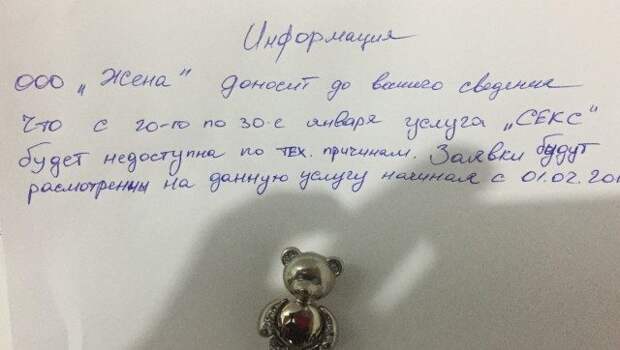 Информация
ООО „Жена" доносит до вашего сведения
Что с 20-го по 30-е января услуга „СЕКС"
будет недоступна по тех. причинам. Заявки будут
расмотренны на данную услугу начиная с 01.02.201